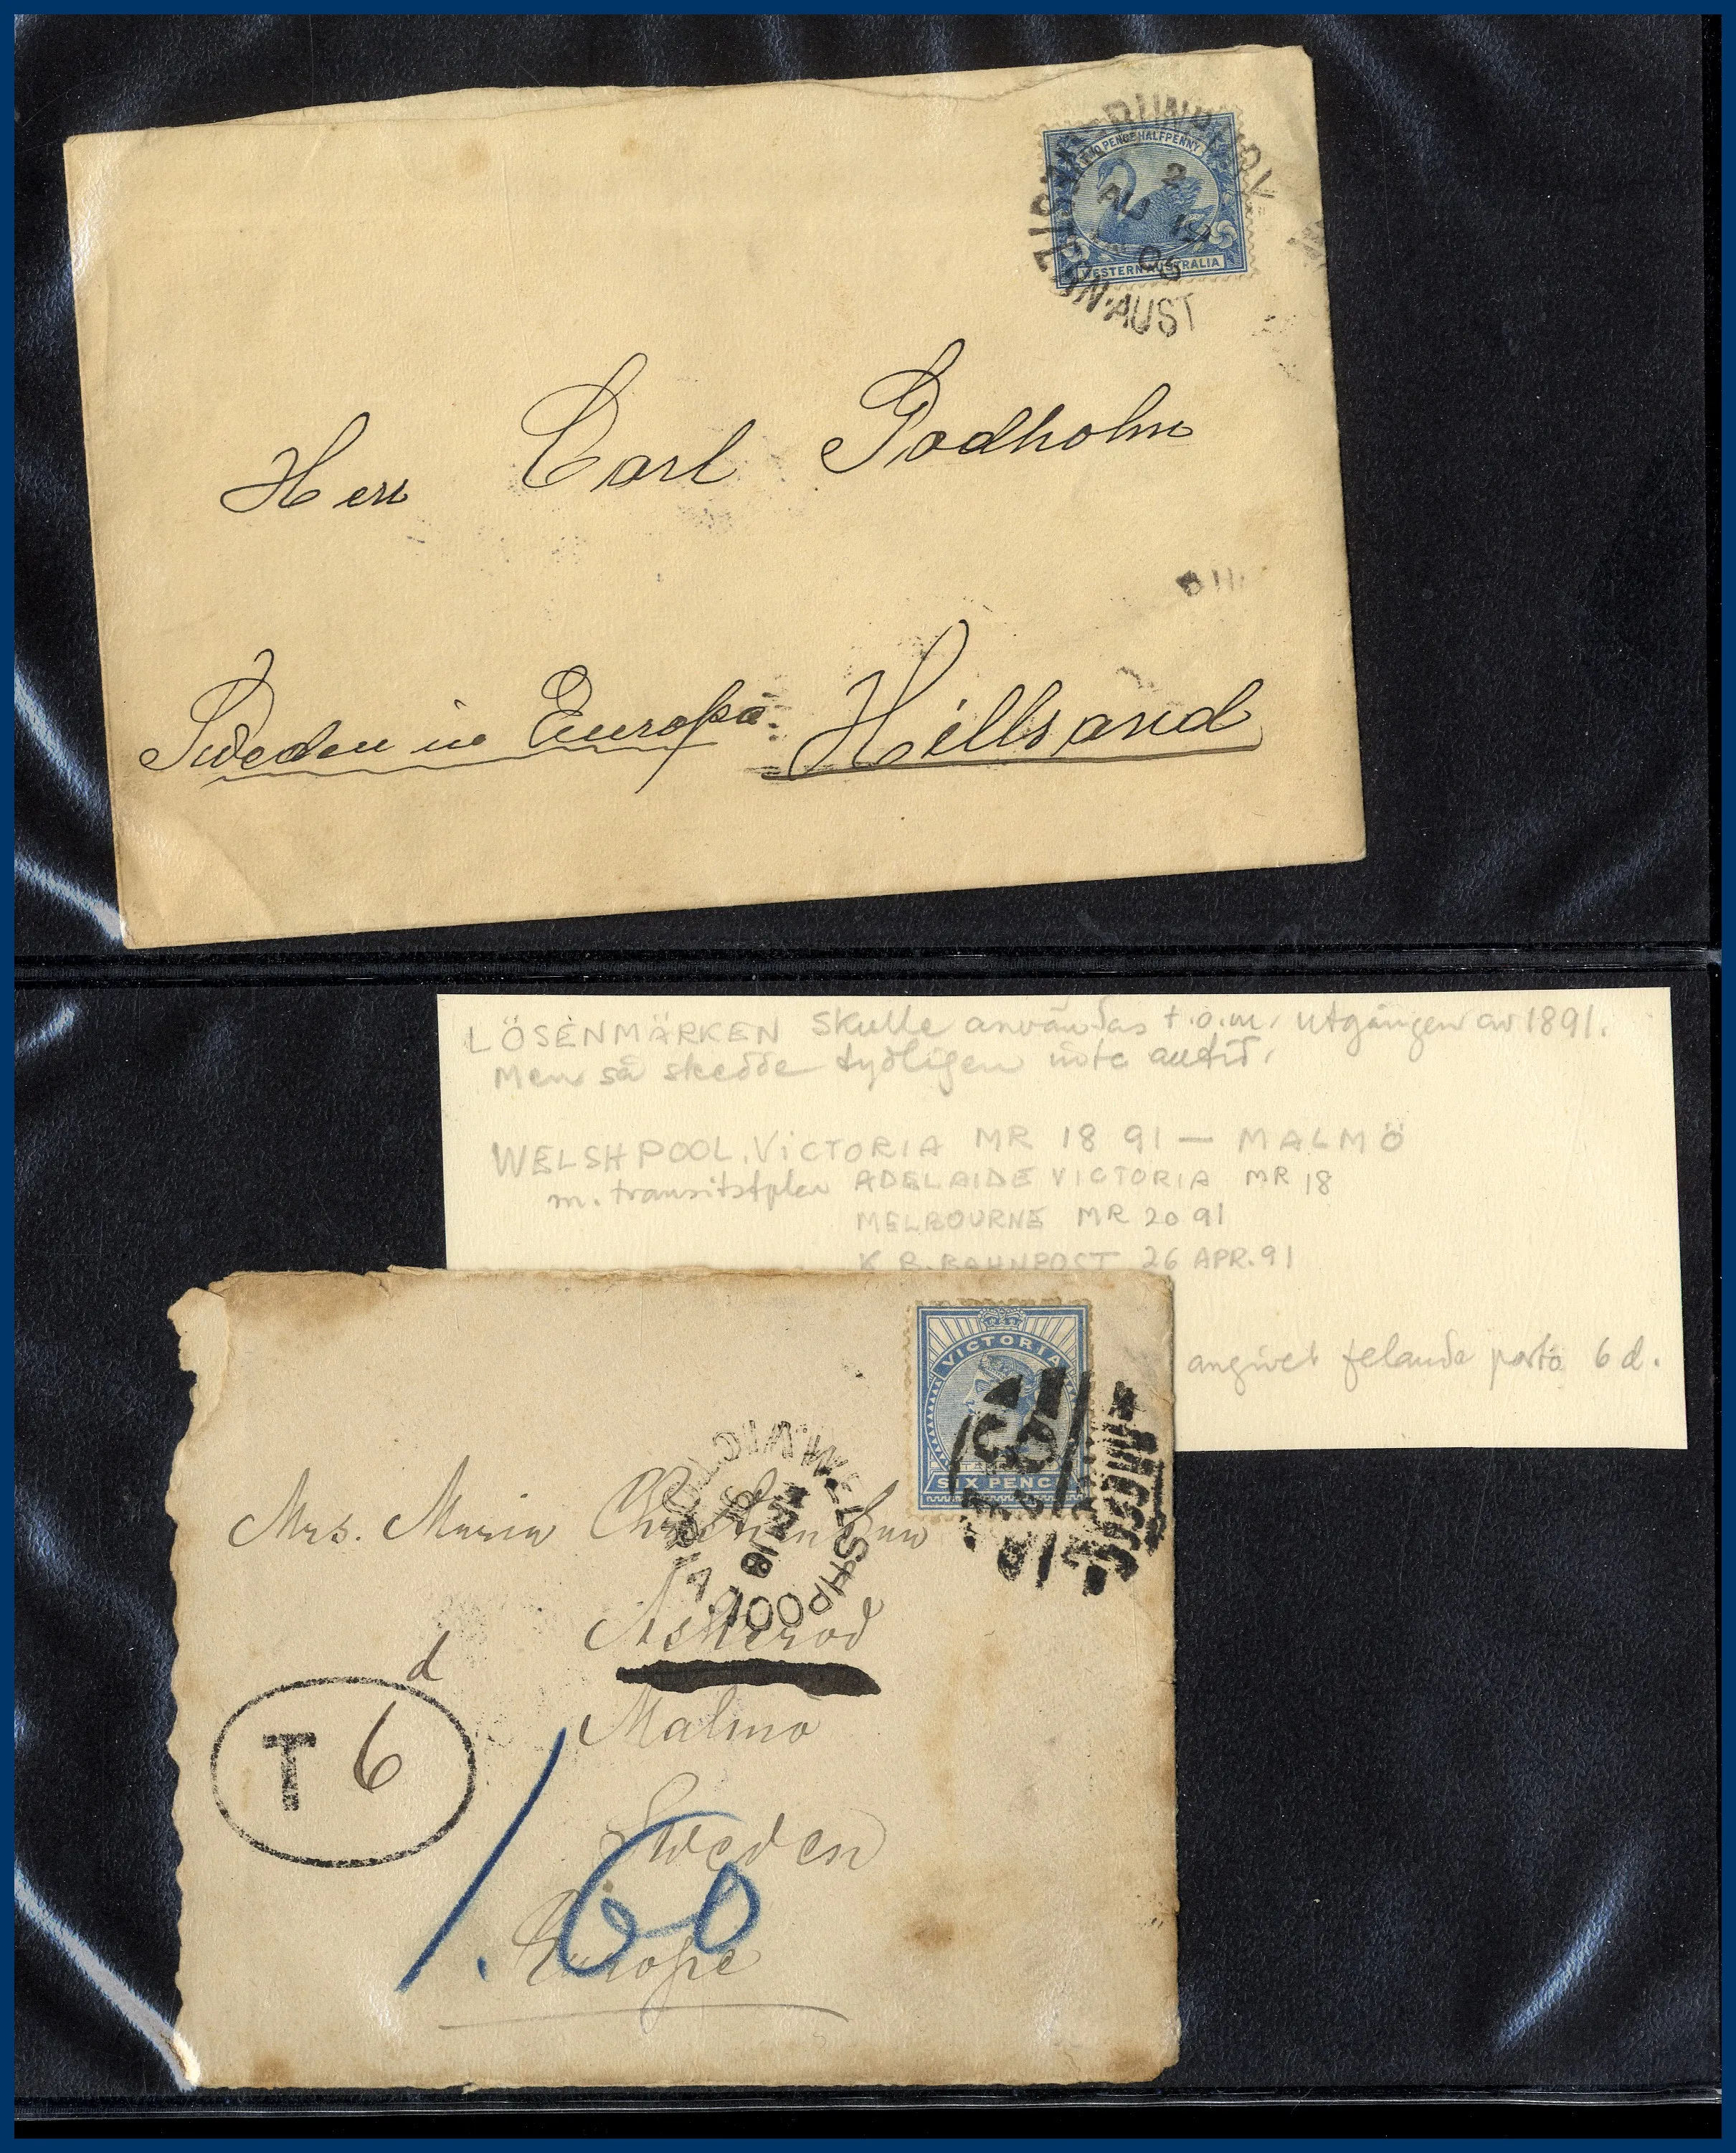 TWO PENCE HALFPENNY
2
AU 15
06
WESTERN AUSTRALIA
N·AUST
Herr Carl Godholm
Sweden in Europa. Hillsand
LÖSENMÄRKEN skulle användas t.o.m. utgången av 1891.
Men så skedde tydligen inte alltid.
WELSHPOOL. VICTORIA MR 18 91 — MALMÖ
m. transitstplar ADELAIDE VICTORIA MR 18
MELBOURNE MR 20 91
K B. BAHNPOST 26 APR. 91
angivet felande porto 6 d.
VICTORIA
SIX PENCE
WELSHPOOL VICTORIA
MR 18
Mrs. Maria Christensen
Malmo
Sweden
Europe
d
T 6
1.60